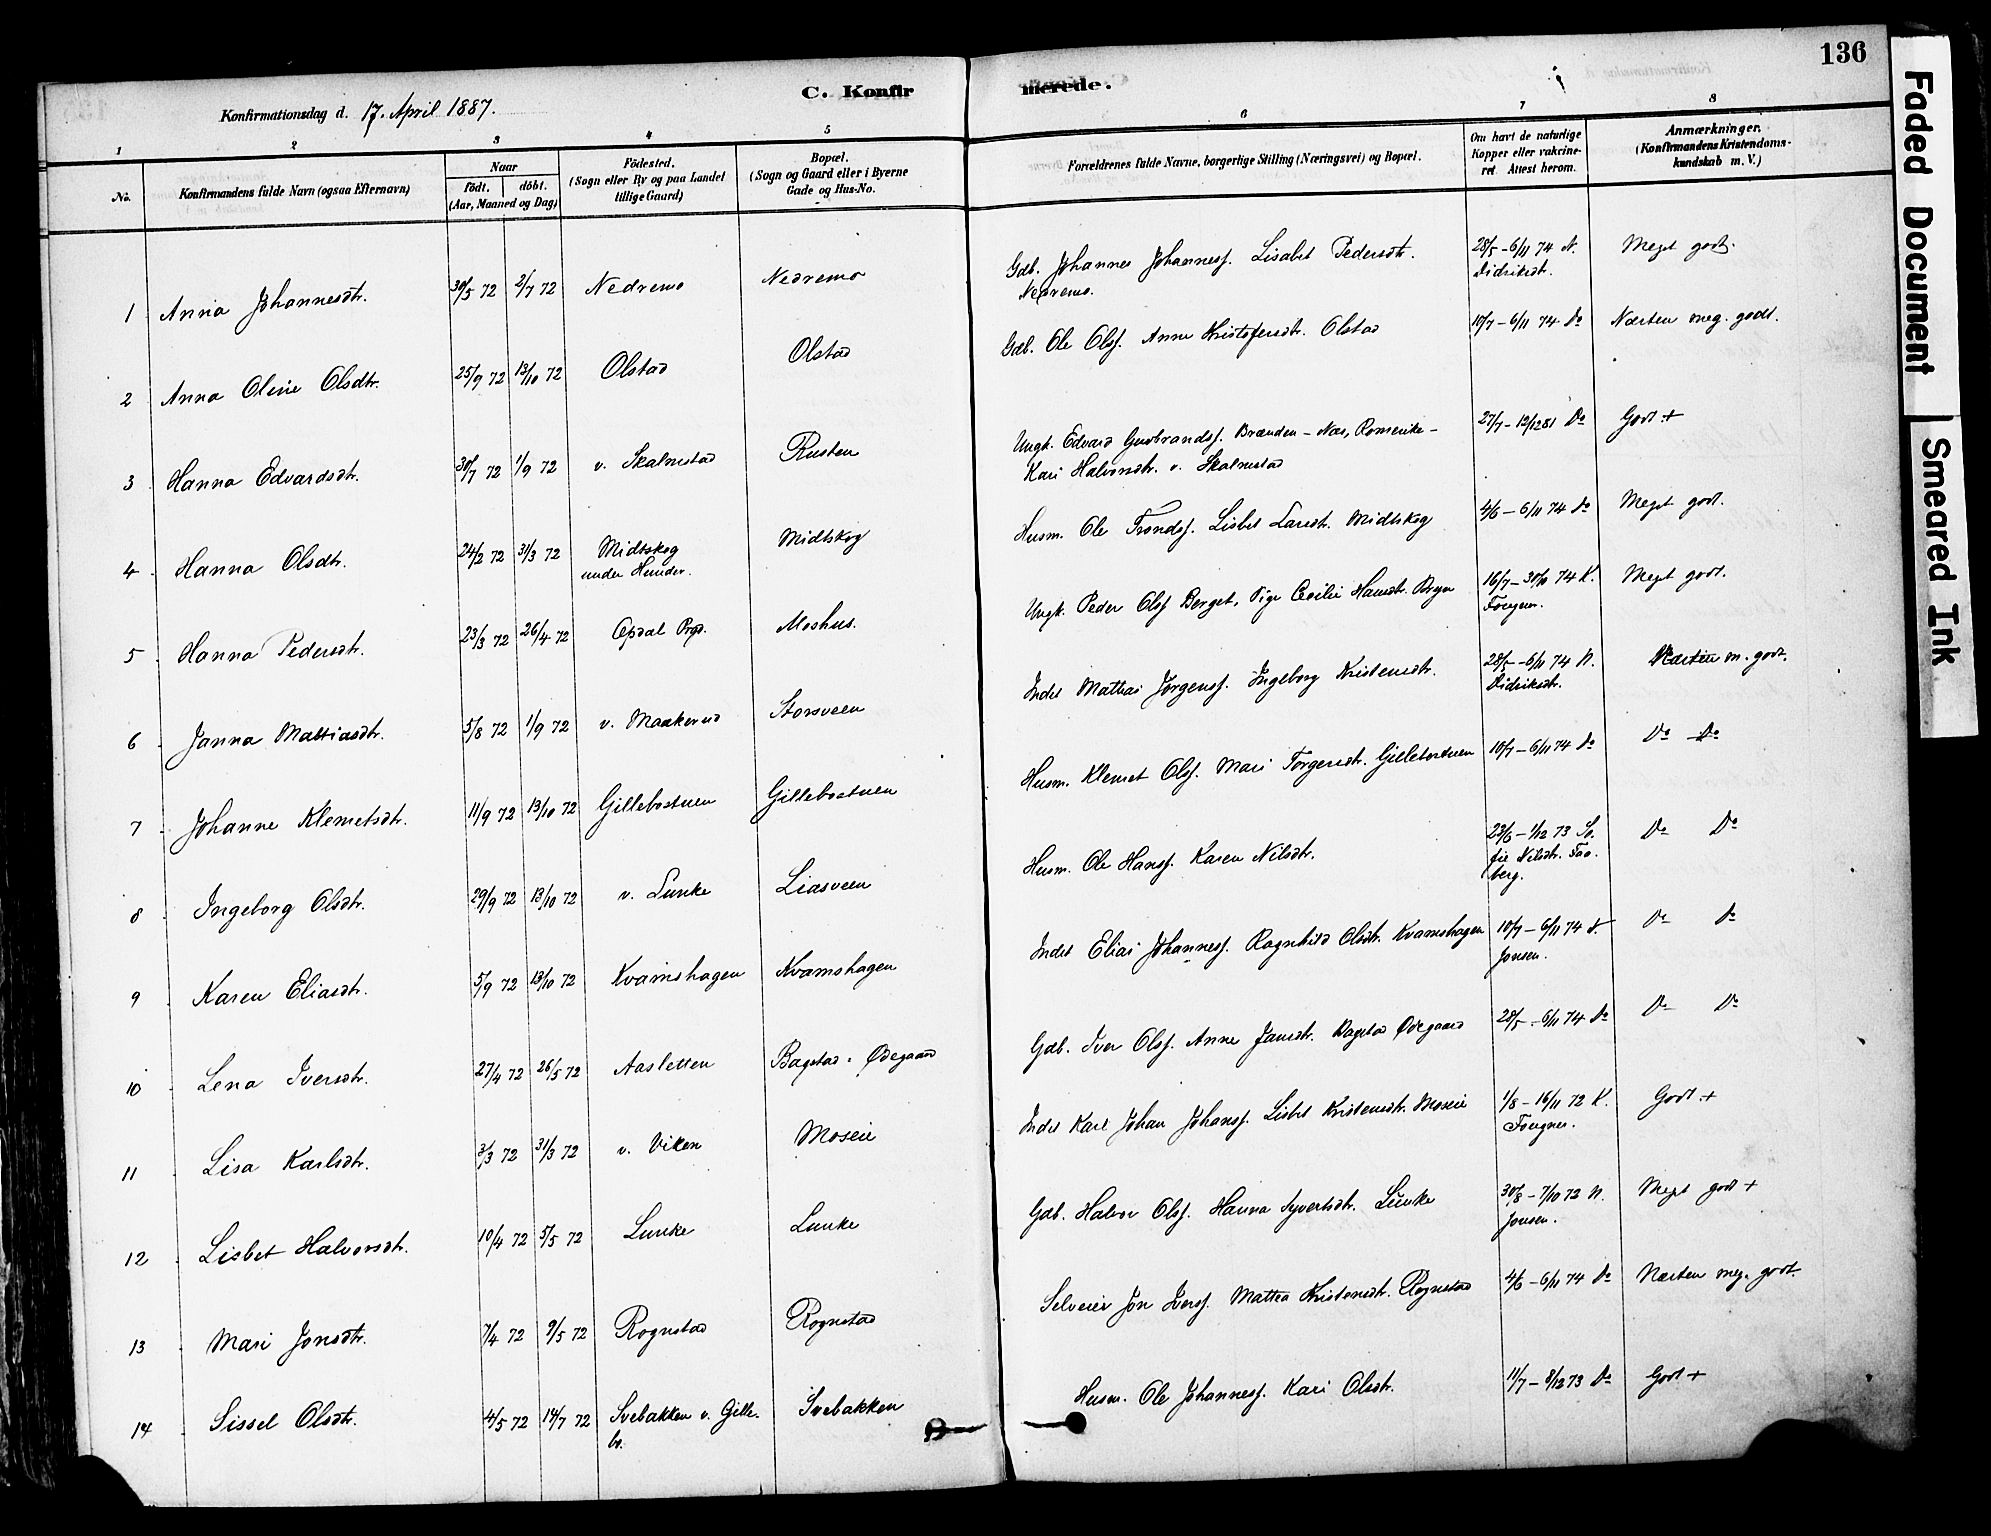 136
C. Konfirmerede.
Konfirmationsdag d. 17. April 1887.
1 2 3 4 5 6 7 8
No.
Konfirmandens fulde Navn (ogsaa Efternavn)
Naar
födt. döbt.
(Aar, Maaned og Dag)
Födested.
(Sogn eller By og paa Landet
tillige Gaard)
Bopæl.
(Sogn og Gaard eller i Byerne
Gade og Hus-No.
Forældrenes fulde Navne, borgerlige Stilling (Næringsvei) og Bopæl.
Om havt de naturlige
Kopper eller vakcine-
ret. Attest herom.
Anmærkninger.
(Konfirmandens Kristendoms-
kundskab m. V.)
1 Anna Johannesdtr. 30/5 72 2/7 72 Nedremo Nedremo Gdb. Johannes Johannesf. Lisabet Pedersdtr. 28/5 - 6/11 74 N. Meget godt.
Nedremo. Didriksdtr.
2 Anna Oline Olsdtr. 25/9 72 13/10 72 Olstad Olstad Gdb. Ole Olsf. Anne Kristofersdtr. Olstad 10/7 - 6/11 74 Do Næsten meg. godt.
3 Hanna Edvardsdtr. 30/7 72 1/9 72 v. Skalmstad Rusten Ungk. Edvard Gudbrandsf. Brænden - Næs, Romerike - 27/7 - 12/12 81 Do Godt +
Kari Halvorsdtr. v. Skalmstad
4 Hanna Olsdtr. 24/2 72 31/3 72 Midtskog Midtskog Husm. Ole Trondsf. Lisbet Larsdtr. Midtskog 4/6 - 6/11 74 Do Meget godt.
under Hunder.
5 Hanna Pedersdtr. 23/3 72 26/4 72 Opdal Prgd. Moshus. Ungk. Peder Olsf Berget, Pige Cecilie Hansdtr. Bryn 16/7 - 30/11 74 K. Meget godt.
6 Janna Mattiasdtr. 5/8 72 1/9 72 v. Maakerud Storsveen Indst Mattias Jørgensf. Ingeborg Kristensdtr. 28/5 - 6/11 74 N. Næsten m. godt.
Didriksdtr.
7 Johanne Klemetsdtr. 11/9 72 13/10 72 Gillebostuen Gillebostuen Husm. Klemet Olsf. Mari Torgersdtr. Gillebostuen 10/7 - 6/11 74 Do Do Do
8 Ingeborg Olsdtr. 29/9 72 13/10 72 v. Lunke Liasveen Husm. Ole Hansf. Karen Nilsdtr. 23/6 - 1/12 73 So- Do Do
fie Nilsdtr. Faa-
berg.
9 Karen Eliasdtr. 5/9 72 13/10 72 Kvamshagen Kvamshagen Indst Elias Johannesf. Ragnhild Olsdtr. Kvamshagen 10/7 - 6/11 74 Do Do
Jonsen.
10 Lena Iversdtr. 27/4 72 26/5 72 Aasletten Bagstad. Ødegaard Gdb. Iver Olsf. Anne Jansdtr. Bagstad Ødegaard 28/5 - 6/11 74 Do Do Do
11 Lisa Karlsdtr. 3/3 72 31/3 72 v. Viken Moseie Indst Karl Johan Johansf. Lisbet Kristensdtr. Moseie 1/8 - 16/11 72 K. Godt. +
Fougner.
12 Lisbet Halvorsdtr. 10/4 72 5/5 72 Lunke Lunke Gdb. Halvor Olsf. Hanna Syvertsdtr. Lunke 30/8 - 7/10 72 N. Meget godt +
Jonsen.
13 Mari Jonsdtr. 7/4 72 9/5 72 Rognstad Rognstad Selveier Jon Iversf. Mattea Kristensdtr. Rognstad 4/6 - 6/11 74 Do Næsten meg. godt.
14 Sissel Olsdtr. 4/5 72 14/7 72 Svebakken v. Gille- Svebakken Husm. Ole Johannesf. Kari Olsdtr. 11/7 - 8/12 73 Do Godt +
bo.
Faded Document
Smeared Ink